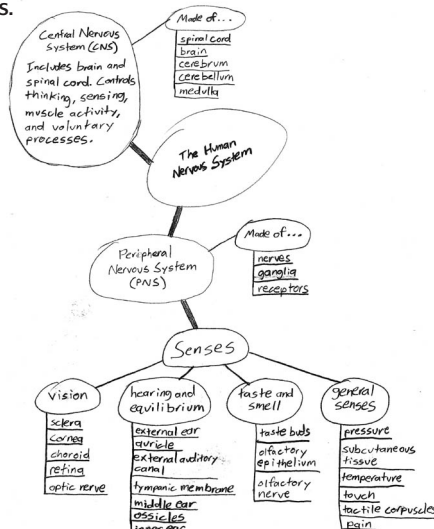 s.
Central Nervous
System (CNS)
Includes brain and
spinal cord. Controls
thinking, sensing,
muscle activity,
and voluntary
processes.
Made of...
spinal cord
brain
cerebrum
cerebellum
medulla
The Human
Nervous System
Peripheral
Nervous System
(PNS)
Made of...
nerves
ganglia
receptors
Senses
vision
sclera
cornea
choroid
retina
optic nerve
hearing and
equilibrium
external ear
auricle
external auditory
canal
tympanic membrane
middle ear
ossicles
inner ear
taste and
smell
taste buds
olfactory
epithelium
olfactory
nerve
general
senses
pressure
subcutaneous
tissue
temperature
touch
tactile corpuscles
pain